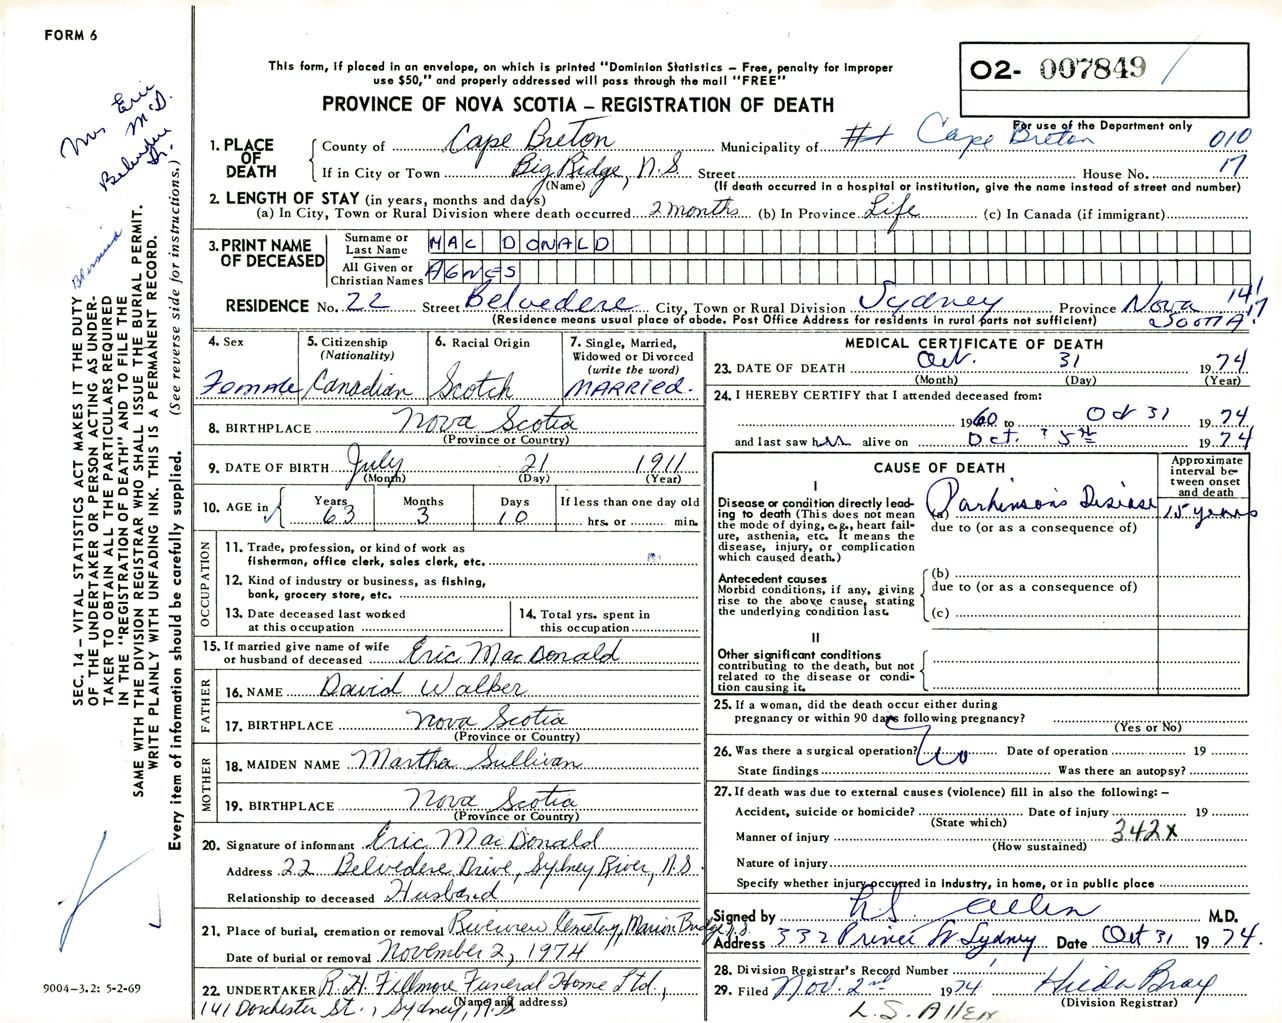 FORM 6
This form, if placed in an envelope, on which is printed "Dominion Statistics – Free, penalty for improper
use $50," and properly addressed will pass through the mail "FREE"
O2- 007849 /
PROVINCE OF NOVA SCOTIA – REGISTRATION OF DEATH
For use of the Department only
Mrs Eric
McD.
Belvedere
Dr.
SEC. 14 – VITAL STATISTICS ACT MAKES IT THE DUTY
OF THE UNDERTAKER OR PERSON ACTING AS UNDER-
TAKER TO OBTAIN ALL THE PARTICULARS REQUIRED
IN THE "REGISTRATION OF DEATH" AND TO FILE THE
SAME WITH THE DIVISION REGISTRAR WHO SHALL ISSUE THE BURIAL PERMIT.
WRITE PLAINLY WITH UNFADING INK. THIS IS A PERMANENT RECORD.
Every item of information should be carefully supplied. (See reverse side for instructions.)
9004-3.2: 5-2-69
1. PLACE OF DEATH
County of Cape Breton Municipality of #1 Cape Breton 010
If in City or Town Big Ridge, N.S. Street House No. 17
(Name) (If death occurred in a hospital or institution, give the name instead of street and number)
2. LENGTH OF STAY (in years, months and days)
(a) In City, Town or Rural Division where death occurred 2 months (b) In Province Life (c) In Canada (if immigrant)
3. PRINT NAME OF DECEASED
Surname or Last Name MAC DONALD
All Given or Christian Names AGNES
RESIDENCE No. 22 Street Belvedere City, Town or Rural Division Sydney Province Nova Scotia 141 17
(Residence means usual place of abode. Post Office Address for residents in rural parts not sufficient)
4. Sex Female
5. Citizenship (Nationality) Canadian
6. Racial Origin Scotch
7. Single, Married, Widowed or Divorced (write the word) MARRIED.
8. BIRTHPLACE Nova Scotia
(Province or Country)
9. DATE OF BIRTH July 21 1911
(Month) (Day) (Year)
10. AGE in Years 63 Months 3 Days 10 If less than one day old hrs. or min.
OCCUPATION
11. Trade, profession, or kind of work as
fisherman, office clerk, sales clerk, etc.
12. Kind of industry or business, as fishing,
bank, grocery store, etc.
13. Date deceased last worked
at this occupation
14. Total yrs. spent in
this occupation
15. If married give name of wife
or husband of deceased Eric MacDonald
FATHER
16. NAME David Walker
17. BIRTHPLACE Nova Scotia
(Province or Country)
MOTHER
18. MAIDEN NAME Martha Sullivan
19. BIRTHPLACE Nova Scotia
(Province or Country)
20. Signature of informant Eric MacDonald
Address 22 Belvedere Drive, Sydney River, N.S.
Relationship to deceased Husband
21. Place of burial, cremation or removal Riverview Cemetery, Marion Bridge, N.S.
Date of burial or removal November 2, 1974
22. UNDERTAKER R. H. Fillmore Funeral Home Ltd.,
(Name and address)
141 Dorchester St., Sydney, N.S
MEDICAL CERTIFICATE OF DEATH
23. DATE OF DEATH Oct. 31 1974
(Month) (Day) (Year)
24. I HEREBY CERTIFY that I attended deceased from:
1960 to Oct 31 1974
and last saw her alive on Oct. 5th 1974
CAUSE OF DEATH
Approximate interval between onset and death
I
Disease or condition directly lead-
ing to death (This does not mean
the mode of dying, e.g., heart fail-
ure, asthenia, etc. It means the
disease, injury, or complication
which caused death.)
(a) Parkinson's Disease 15 years
due to (or as a consequence of)
Antecedent causes
Morbid conditions, if any, giving
rise to the above cause, stating
the underlying condition last.
(b)
due to (or as a consequence of)
(c)
II
Other significant conditions
contributing to the death, but not
related to the disease or condi-
tion causing it.
25. If a woman, did the death occur either during
pregnancy or within 90 days following pregnancy?
(Yes or No)
26. Was there a surgical operation? No Date of operation 19
State findings Was there an autopsy?
27. If death was due to external causes (violence) fill in also the following: –
Accident, suicide or homicide? Date of injury 19
(State which)
Manner of injury 342x
(How sustained)
Nature of injury
Specify whether injury occurred in industry, in home, or in public place
Signed by L.S. Allen M.D.
Address 332 Prince St Sydney Date Oct 31 1974.
28. Division Registrar's Record Number 1
29. Filed Nov. 2nd 1974 Hilda Bray
(Division Registrar)
L.S. Allen